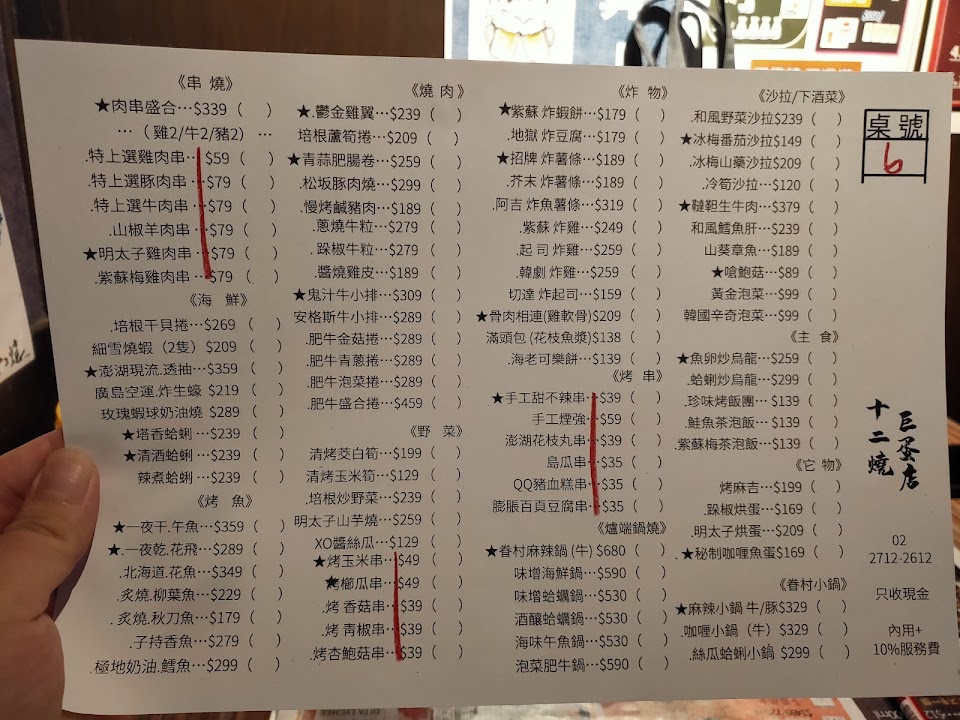 《串 燒》
★肉串盛合…$339 (  )
…（雞2/牛2/豬2）…
.特上選雞肉串…$59 (  )
.特上選豚肉串…$79 (  )
.特上選牛肉串…$79 (  )
.山椒羊肉串…$79 (  )
★明太子雞肉串…$79 (  )
.紫蘇梅雞肉串…$79 (  )
《海 鮮》
.培根干貝捲…$269 (  )
細雪燒蝦（2隻）$209 (  )
★澎湖現流.透抽…$359 (  )
廣島空運.炸生蠔 $219 (  )
玫瑰蝦球奶油燒 $289 (  )
★塔香蛤蜊 …$239 (  )
★清酒蛤蜊 …$239 (  )
辣煮蛤蜊 …$239 (  )
《烤 魚》
★一夜干.午魚…$359 (  )
★.一夜乾.花飛…$289 (  )
.北海道.花魚…$349 (  )
.炙燒.柳葉魚…$229 (  )
.炙燒.秋刀魚…$179 (  )
.子持香魚…$279 (  )
.極地奶油.鱈魚…$299 (  )
《燒 肉》
★鬱金雞翼…$239 (  )
培根蘆筍捲…$209 (  )
★青蒜肥腸卷…$259 (  )
.松坂豚肉燒…$299 (  )
.慢烤鹹豬肉…$189 (  )
.蔥燒牛粒…$279 (  )
.跺椒牛粒…$279 (  )
.醬燒雞皮…$189 (  )
★鬼汁牛小排…$309 (  )
安格斯牛小排…$289 (  )
.肥牛金菇捲…$289 (  )
.肥牛青蔥捲…$289 (  )
.肥牛泡菜捲…$289 (  )
.肥牛盛合捲…$459 (  )
《野 菜》
清烤茭白筍…$199 (  )
清烤玉米筍…$129 (  )
.培根炒野菜…$239 (  )
明太子山芋燒…$259 (  )
XO醬絲瓜…$129 (  )
★烤玉米串…$49 (  )
★烤櫛瓜串…$49 (  )
.烤 香菇串…$39 (  )
.烤 青椒串…$39 (  )
.烤杏鮑菇串…$39 (  )
《炸 物》
★紫蘇 炸蝦餅…$179 (  )
.地獄 炸豆腐…$179 (  )
★招牌 炸薯條…$189 (  )
芥末 炸薯條…$189 (  )
阿吉 炸魚薯條…$319 (  )
.紫蘇 炸雞…$249 (  )
.起司 炸雞…$259 (  )
.韓劇 炸雞…$259 (  )
切達 炸起司…$159 (  )
★骨肉相連(雞軟骨)$209 (  )
滿頭包 (花枝魚漿)$138 (  )
.海老可樂餅…$139 (  )
《烤 串》
★手工甜不辣串…$39 (  )
手工煙強…$59 (  )
澎湖花枝丸串…$39 (  )
島瓜串…$35 (  )
QQ豬血糕串…$35 (  )
膨脹百頁豆腐串…$35 (  )
《爐端鍋燒》
★眷村麻辣鍋 (牛) $680 (  )
味增海鮮鍋…$590 (  )
味增蛤蠣鍋…$530 (  )
酒釀蛤蠣鍋…$530 (  )
海味午魚鍋…$530 (  )
泡菜肥牛鍋…$590 (  )
《沙拉/下酒菜》
.和風野菜沙拉$239 (  )
★冰梅番茄沙拉$149 (  )
.冰梅山藥沙拉$209 (  )
.冷筍沙拉…$120 (  )
★韃靼生牛肉…$379 (  )
和風鱈魚肝…$239 (  )
山葵章魚…$189 (  )
★嗆鮑菇…$89 (  )
黃金泡菜…$99 (  )
韓國辛奇泡菜…$99 (  )
《主 食》
★魚卵炒烏龍…$259 (  )
.蛤蜊炒烏龍…$299 (  )
.珍味烤飯團…$139 (  )
.鮭魚茶泡飯…$139 (  )
紫蘇梅茶泡飯…$139 (  )
《它 物》
烤麻吉…$199 (  )
.跺椒烘蛋…$169 (  )
明太子烘蛋…$209 (  )
★秘制咖喱魚蛋$169 (  )
《眷村小鍋》
★麻辣小鍋 牛/豚$329 (  )
.咖喱小鍋（牛）$329 (  )
.絲瓜蛤蜊小鍋 $299 (  )
桌號
6
十二燒
巨蛋店
02
2712-2612
只收現金
內用+
10%服務費